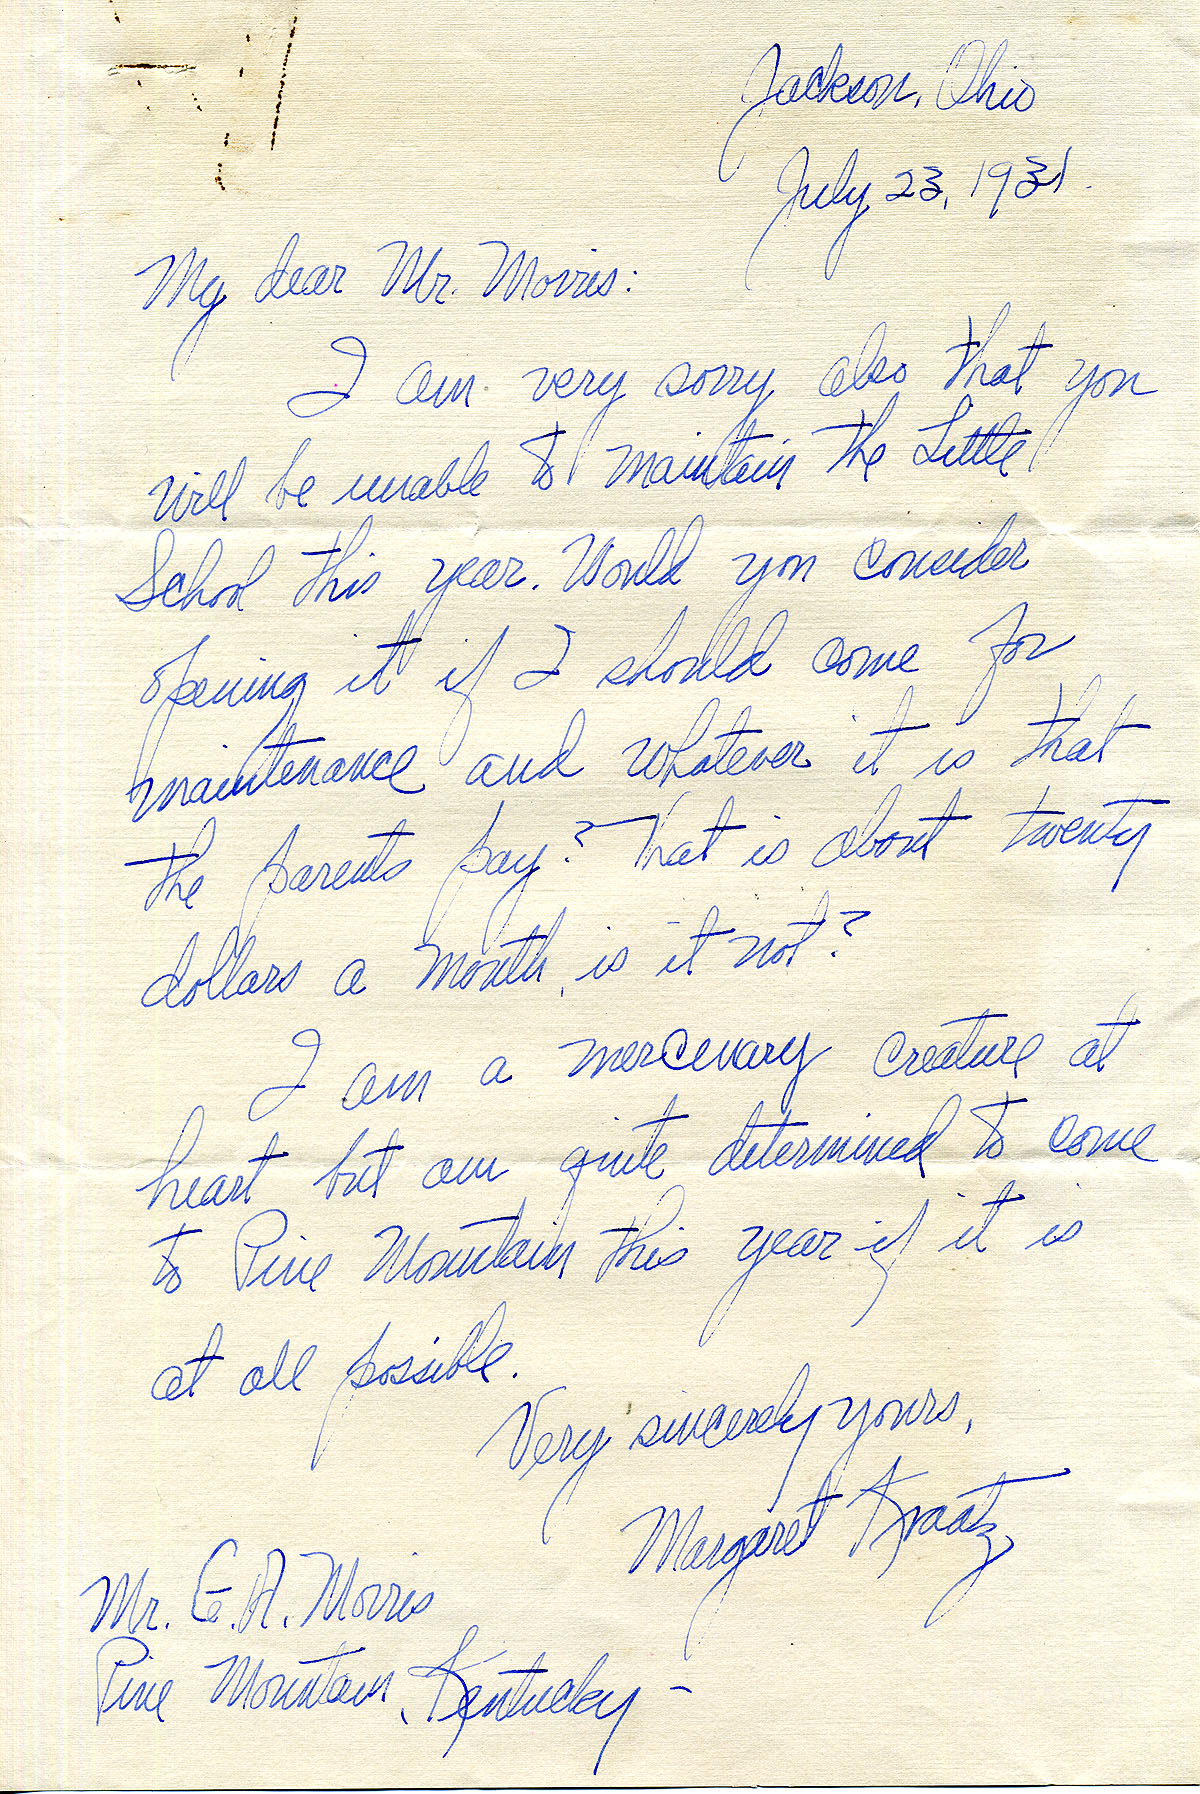 Jackson, Ohio
July 23, 1931
My dear Mr. Morris:
I am very sorry also that you
will be unable to maintain the Little
School this year. Would you consider
opening it if I should come for
maintenance and whatever it is that
the parents pay? That is about twenty
dollars a month, is it not?
I am a mercenary creature at
heart but am quite determined to come
to Pine Mountain this year if it is
at all possible.
Very sincerely yours,
Margaret Kraatz
Mr. G. A. Morris
Pine Mountain, Kentucky -